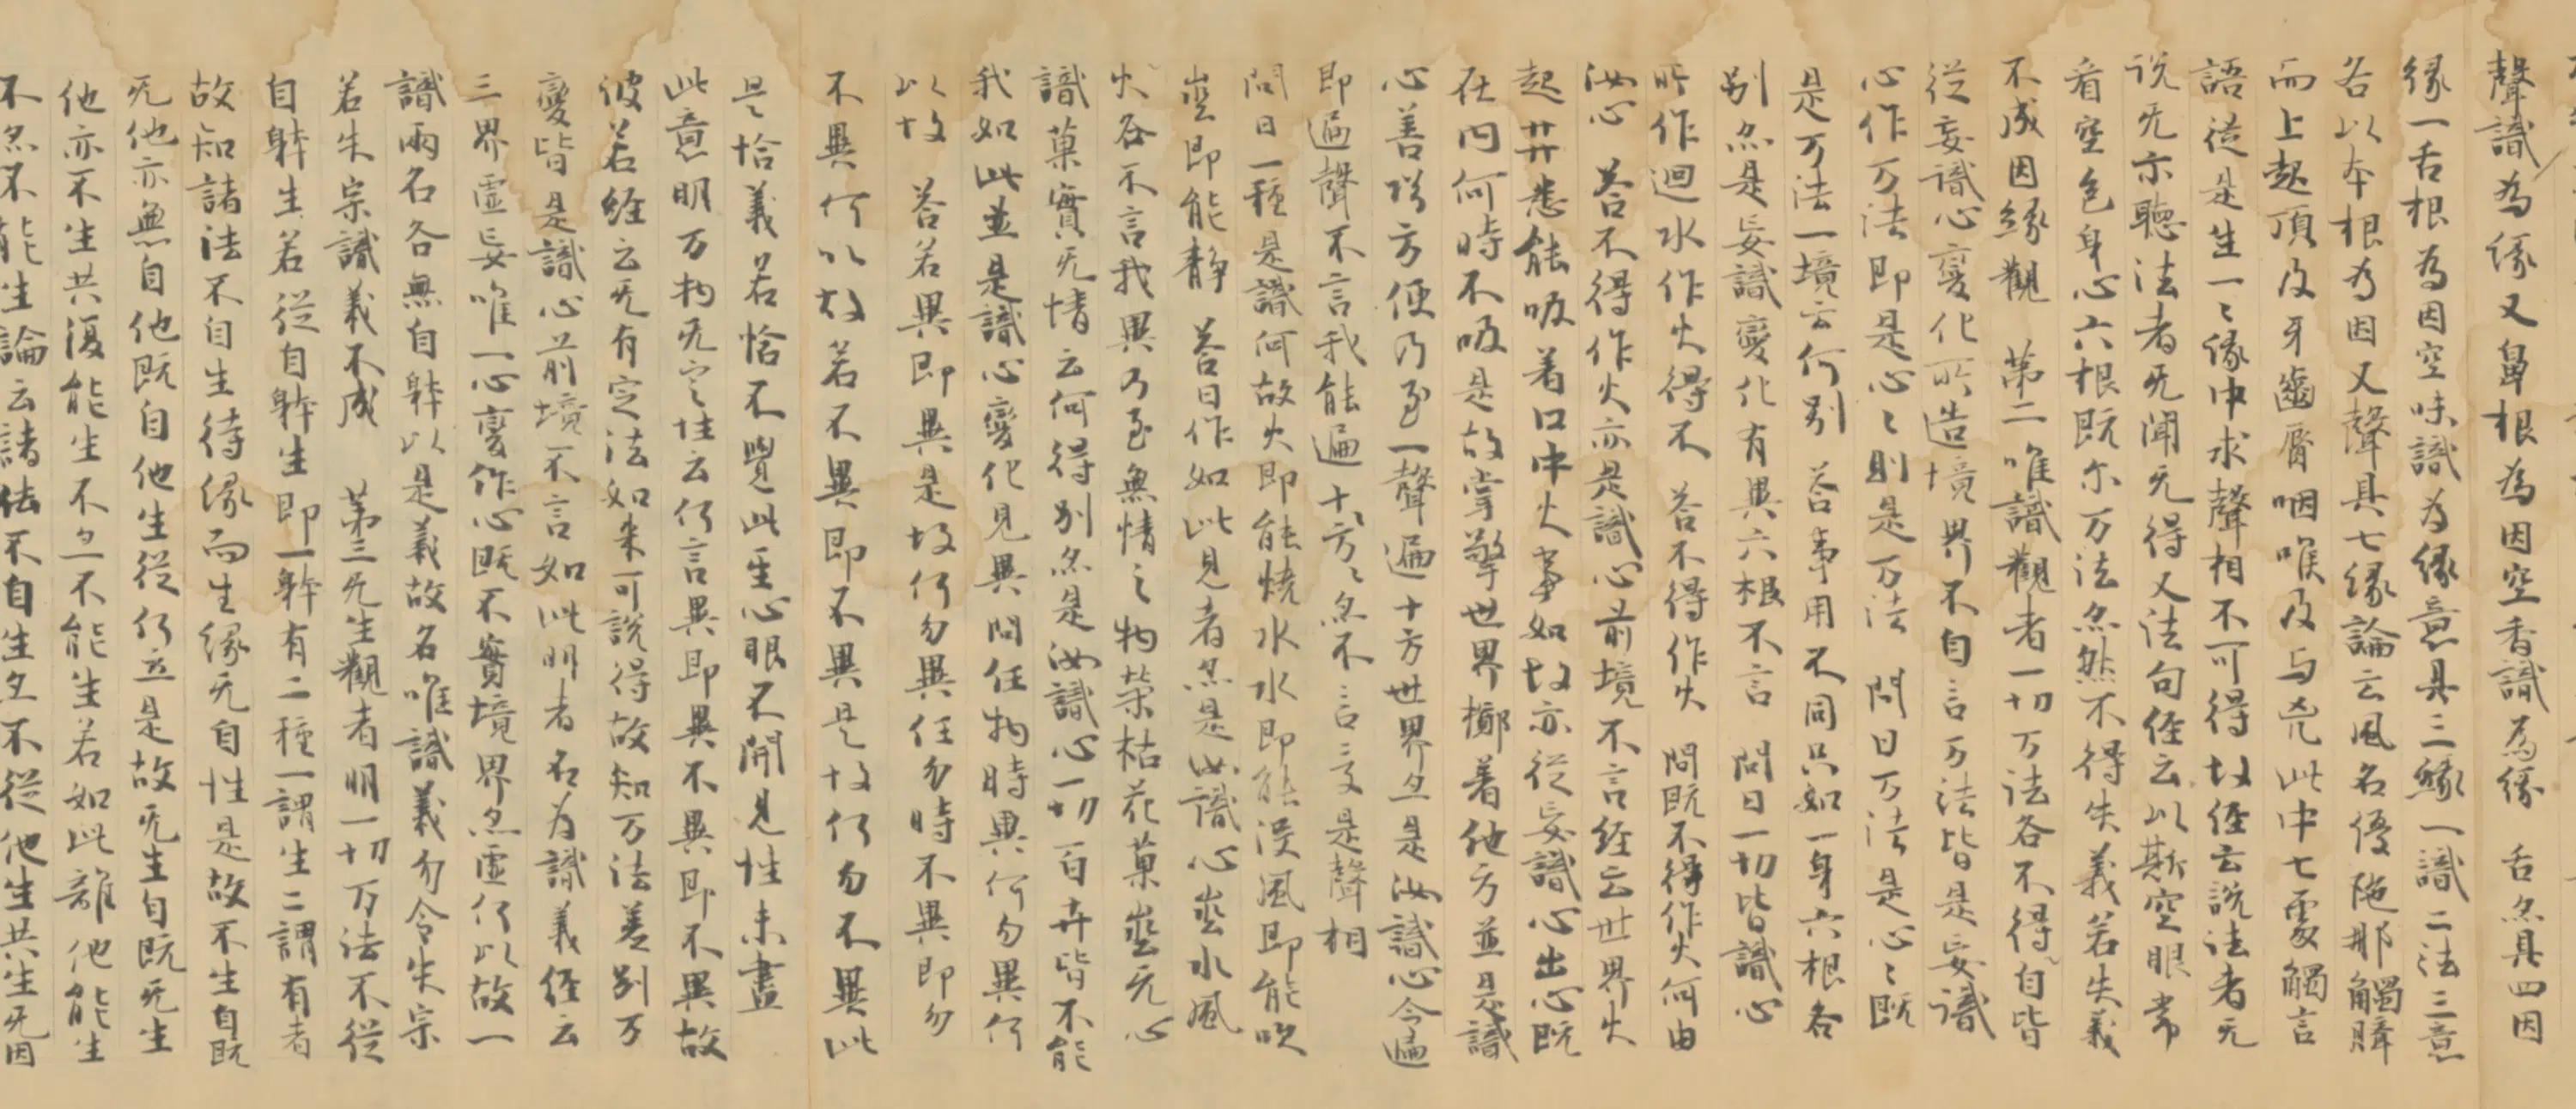 聲識為緣又鼻根為因空香識為緣 舌亦具四因
緣一舌根為因空味識為緣意具三緣一識二法三意
各以本根為因又聲具七緣論云風名優陁那觸臍
而上起頂及牙齒脣咽喉及与𠙖此中七處觸言
語從是生一〻緣中求聲相不可得故經云說法者无
說无示聽法者无聞无得又法句經云以斯空眼常
看空色身心六根既尔万法亦然不得失義若失義
不成因緣觀 第二唯識觀者一切万法各不得自皆
從妄識心變化所造境界不自言万法皆是妄識
心作万法即是心〻則是万法 問曰万法是心〻既
是万法一境云何别 答事用不同只如一身六根各
别亦是妄識變化有異六根不言 問曰一切皆識心
所作迴水作火得不 答不得作火 問既不得作火何由
汝心 答不得作火亦是識心前境不言經云世界火
起𦬇悉能吸着口中火事如故亦從妄識心出心既
在内何時不吸是故掌擎世界擲着他方並是識
心善巧方便乃至一聲遍十方世界亦是汝識心令遍
即遍聲不言我能遍十方〻亦不言我是聲相
問曰一種是識何故火即能燒水水即能浸風即能吹
空即能靜 答曰作如此見者亦是汝識心空水風
火各不言我異乃至無情之物榮枯花菓空无心
識菓實无情云何得别亦是汝識心一切百卉皆不能
我如此並是識心變化見異問任物時異何勿異何
以故 答若異即異是故何勿異任勿時不異即勿
不異何以故若不異即不異是故何勿不異此
是恰義若恰不覺此至心眼不開見性未盡
此意明万物无定性云何言異即異不異即不異故
彼若經云无有定法如来可説得故知万法差别万
變皆是識心前境不言如此明者名为識義經云
三界虛妄唯一心變作心既不實境界亦虛何以故一
識兩名各無自躰以是義故名唯識義勿令失宗
若失宗識義不成 第三无生觀者明一切万法不從
自躰生若從自躰生即一躰有二種一謂生二謂有者
故知諸法不自生待緣而生緣无自性是故不生自既
无他亦無自他既自他生從何立是故无生自既无生
他亦不生共復能生不亦不能生若如此離他能生
不亦不能生論云諸法不自生亦不從他生共生无因